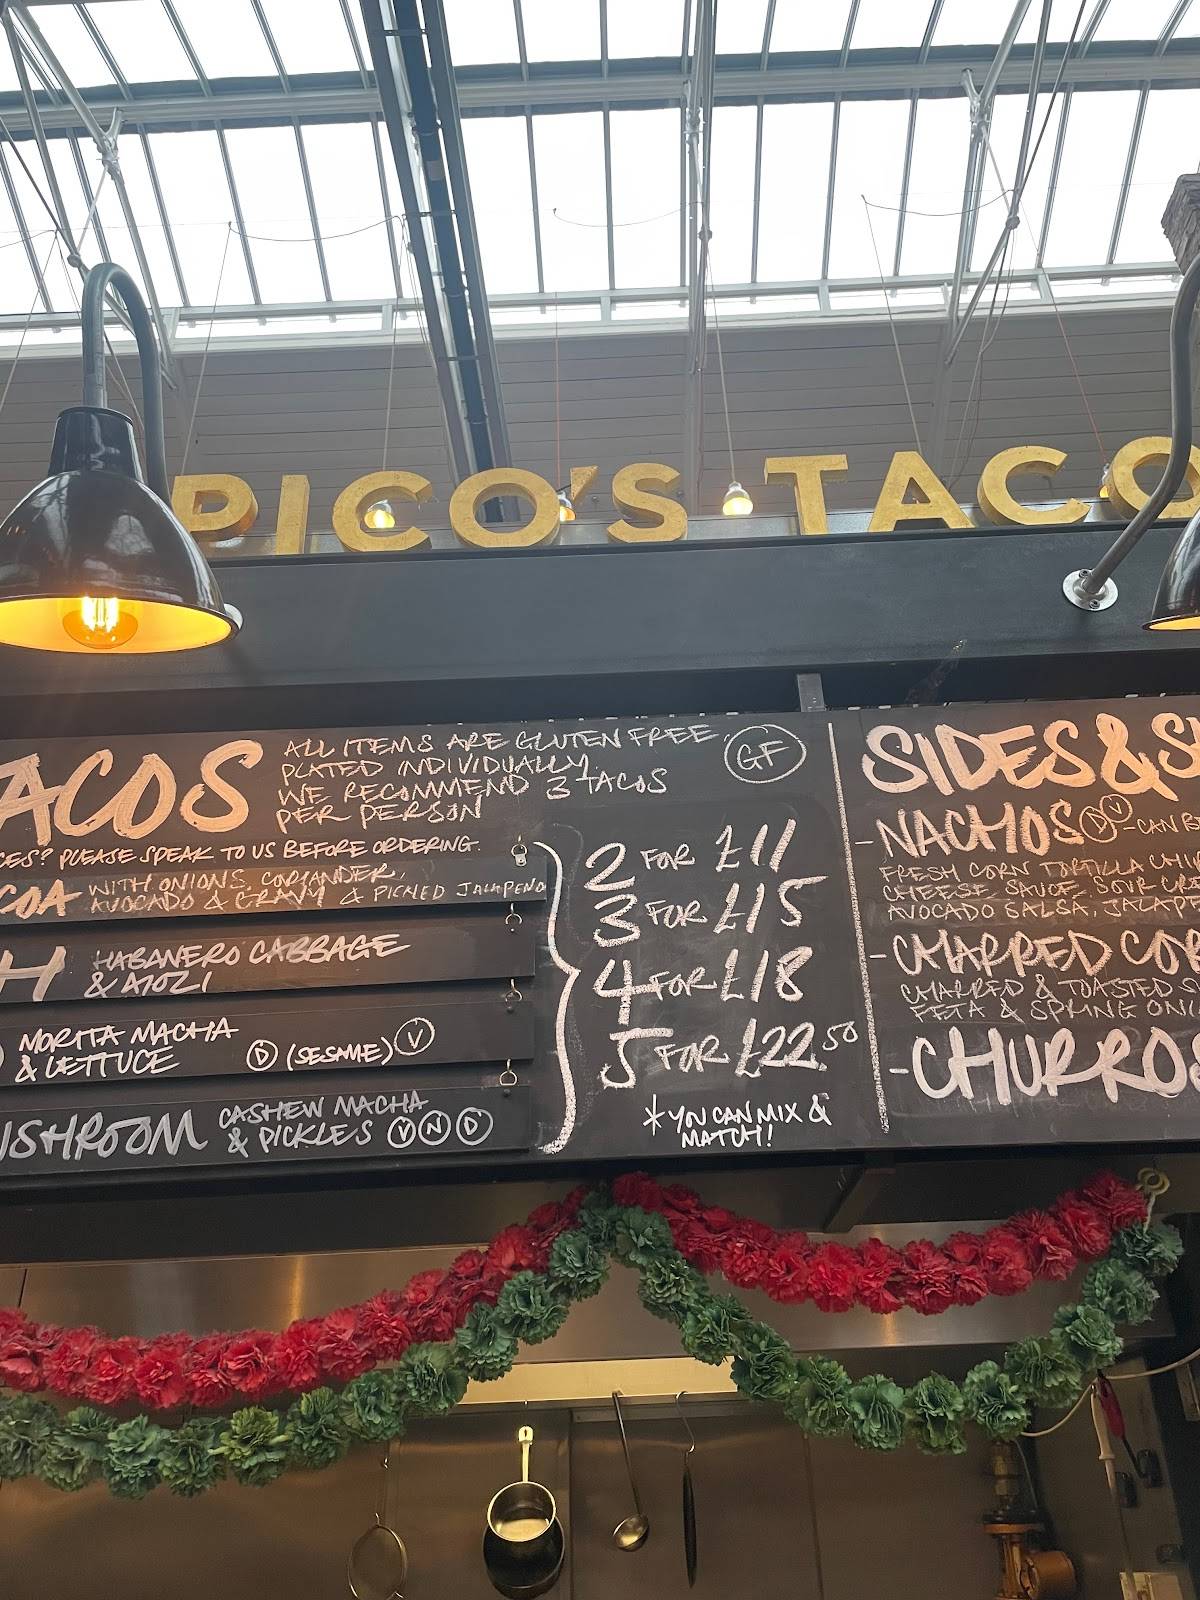 PICO'S TACO
ACOS
ALL ITEMS ARE GLUTEN FREE, GF
PLATED INDIVIDUALLY.
WE RECOMMEND 3 TACOS
PER PERSON
CES? PLEASE SPEAK TO US BEFORE ORDERING.
COA WITH ONIONS, CORIANDER,
AVOCADO & GRAVY & PICKLED JALAPENO
H HABANERO CABBAGE
& AIOLI
MORITA MACHA
& LETTUCE D (SESAME) V
USHROOM CASHEW MACHA
& PICKLES V N D
2 FOR £11
3 FOR £15
4 FOR £18
5 FOR £22.50
* YOU CAN MIX &
MATCH!
SIDES & S
- NACHOS D V - CAN B
FRESH CORN TORTILLA CHI
CHEESE SAUCE, SOUR CRE
AVOCADO SALSA, JALAPE
- CHARRED COR
CHARRED & TOASTED S
FETA & SPRING ONI
- CHURROS